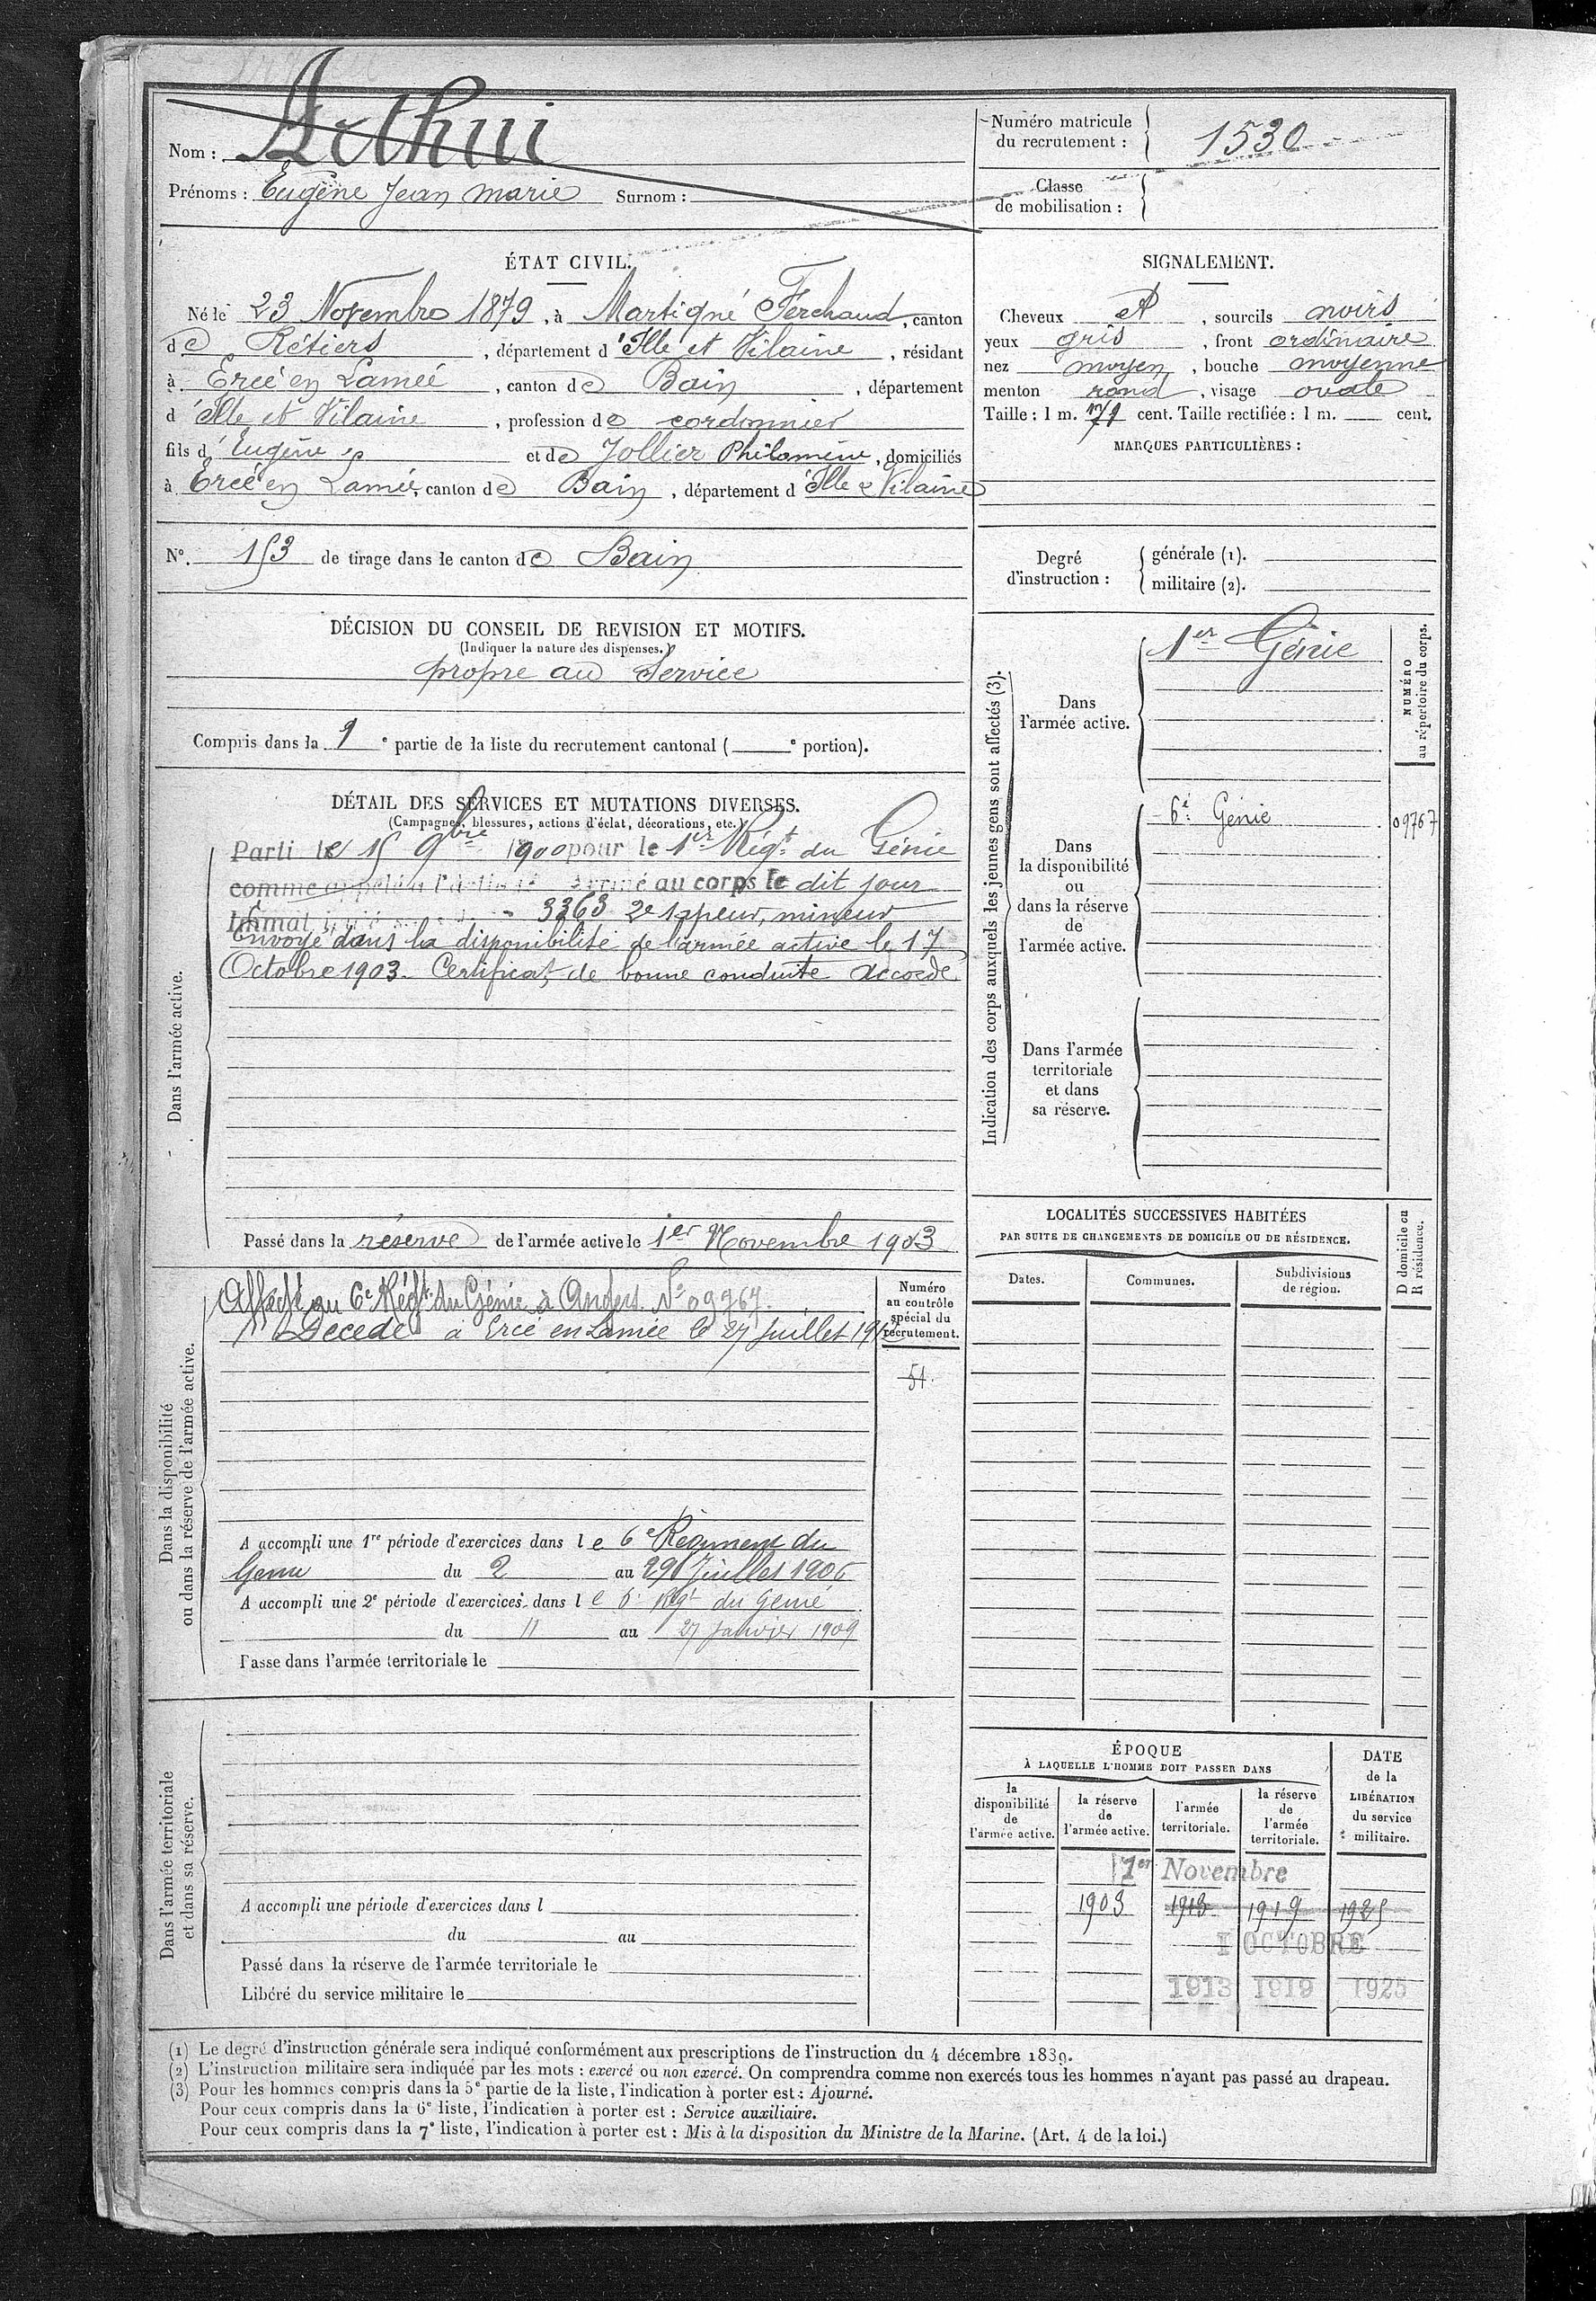 Nom : Arthui
Prénoms : Eugène Jean Marie Surnom :
Numéro matricule du recrutement : 1530
Classe de mobilisation :
ÉTAT CIVIL.
Né le 23 Novembre 1879, à Martigné Ferchaud, canton
de Rétiers, département d'Ille et Vilaine, résidant
à Ercé en Lamée, canton de Bain, département
d'Ille et Vilaine, profession de cordonnier
fils d'Eugène et de Jollier Philomène, domiciliés
à Ercé en Lamée, canton de Bain, département d'Ille & Vilaine
N°. 153 de tirage dans le canton de Bain
SIGNALEMENT.
Cheveux d°, sourcils noirs
yeux gris, front ordinaire
nez moyen, bouche moyenne
menton rond, visage ovale
Taille : 1 m. 71 cent. Taille rectifiée : 1 m. cent.
MARQUES PARTICULIÈRES :
Degré d'instruction : générale (1).
militaire (2).
DÉCISION DU CONSEIL DE REVISION ET MOTIFS.
(Indiquer la nature des dispenses.)
propre au service
Compris dans la 1e partie de la liste du recrutement cantonal ( e portion).
DÉTAIL DES SERVICES ET MUTATIONS DIVERSES.
(Campagnes, blessures, actions d'éclat, décorations, etc.)
Dans l'armée active.
Parti le 15 9bre 1900 pour le 1er Régt du Génie
comme appelé à l'activité arrivé au corps le dit jour
Immatriculé 3363 2e sapeur, mineur
Envoyé dans la disponibilité de l'armée active le 17
Octobre 1903. Certificat de bonne conduite accordé
Passé dans la réserve de l'armée active le 1er Novembre 1903
Indication des corps auxquels les jeunes gens sont affectés (3).
Dans l'armée active.
1er Génie
NUMÉRO au répertoire du corps.
Dans la disponibilité ou dans la réserve de l'armée active.
6e Génie
09767
Dans l'armée territoriale et dans sa réserve.
Dans la disponibilité ou dans la réserve de l'armée active.
Affecté au 6e Régt du Génie à Angers. N° 09767.
Décédé à Ercé en Lamée le 27 Juillet
Numéro au contrôle spécial du recrutement.
51
A accompli une 1re période d'exercices dans le 6e Régiment du
Génie du 2 au 29 Juillet 1906
A accompli une 2e période d'exercices dans le 6e Régt du Génie
du 11 au 27 Janvier 1909
Passé dans l'armée territoriale le
LOCALITÉS SUCCESSIVES HABITÉES
PAR SUITE DE CHANGEMENTS DE DOMICILE OU DE RÉSIDENCE.
Dates. Communes. Subdivisions de région.
D domicile ou R résidence.
Dans l'armée territoriale et dans sa réserve.
A accompli une période d'exercices dans l
du au
Passé dans la réserve de l'armée territoriale le
Libéré du service militaire le
ÉPOQUE
À LAQUELLE L'HOMME DOIT PASSER DANS
la disponibilité de l'armée active.
la réserve de l'armée active.
l'armée territoriale.
la réserve de l'armée territoriale.
DATE de la LIBÉRATION du service militaire.
1er Novembre
1903 1913 1919 1925
1 OCTOBRE
1913 1919 1925
(1) Le degré d'instruction générale sera indiqué conformément aux prescriptions de l'instruction du 4 décembre 1889.
(2) L'instruction militaire sera indiquée par les mots : exercé ou non exercé. On comprendra comme non exercés tous les hommes n'ayant pas passé au drapeau.
(3) Pour les hommes compris dans la 5e partie de la liste, l'indication à porter est : Ajourné.
Pour ceux compris dans la 6e liste, l'indication à porter est : Service auxiliaire.
Pour ceux compris dans la 7e liste, l'indication à porter est : Mis à la disposition du Ministre de la Marine. (Art. 4 de la loi.)